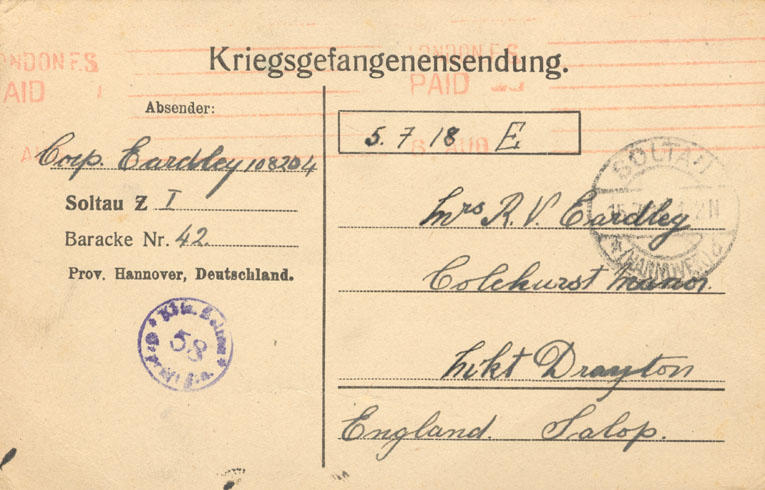 LONDON F.S. LONDON F.S.
PAID PAID
Kriegsgefangenensendung.
Absender:
Corp. Eardley 108204
Soltau Z I
Baracke Nr. 42.
Prov. Hannover, Deutschland.
58
5.7 18 E
AUG
SOLTAU
(HANNOVER)
Mrs R. V. Eardley
Colehurst Manor
Mkt Drayton
England. Salop.